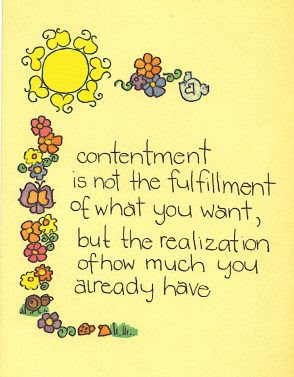 contentment
is not the fulfillment
of what you want,
but the realization
of how much you
already have